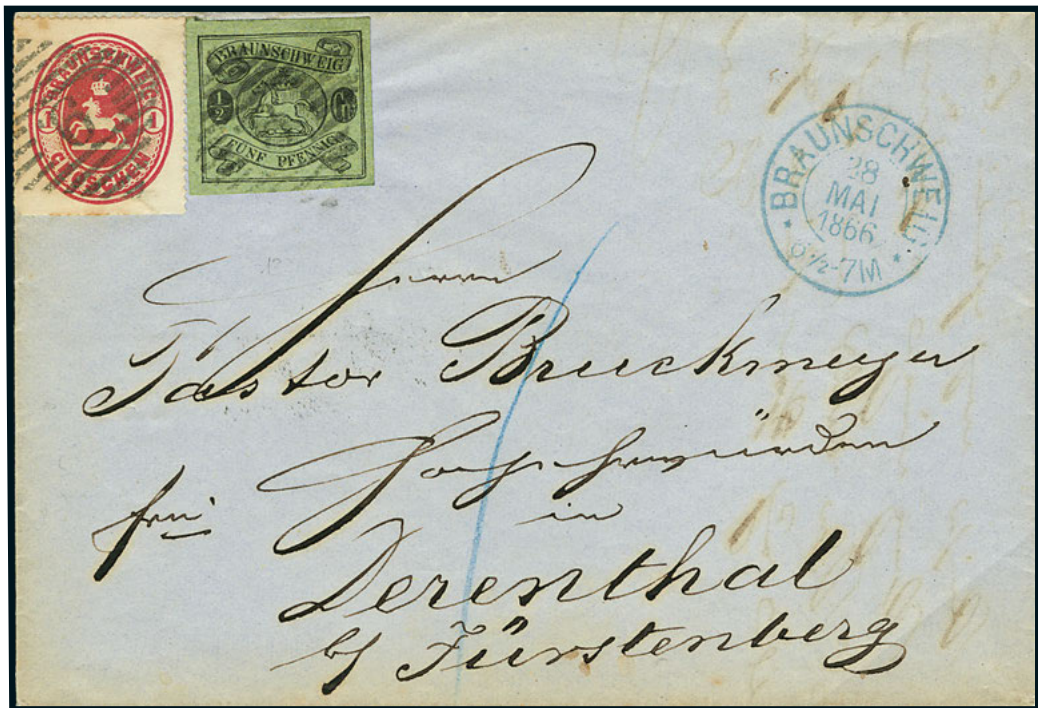 BRAUNSCHWEIG
1 1
GROSCHEN
BRAUNSCHWEIG
½ G
FÜNF PFENNIG
BRAUNSCHWEIG
28
MAI
1866
6½-7M
Herrn
Pastor Bruckmeyer
Hochehrwürden
frei
in
Derenthal
b/ Fürstenberg